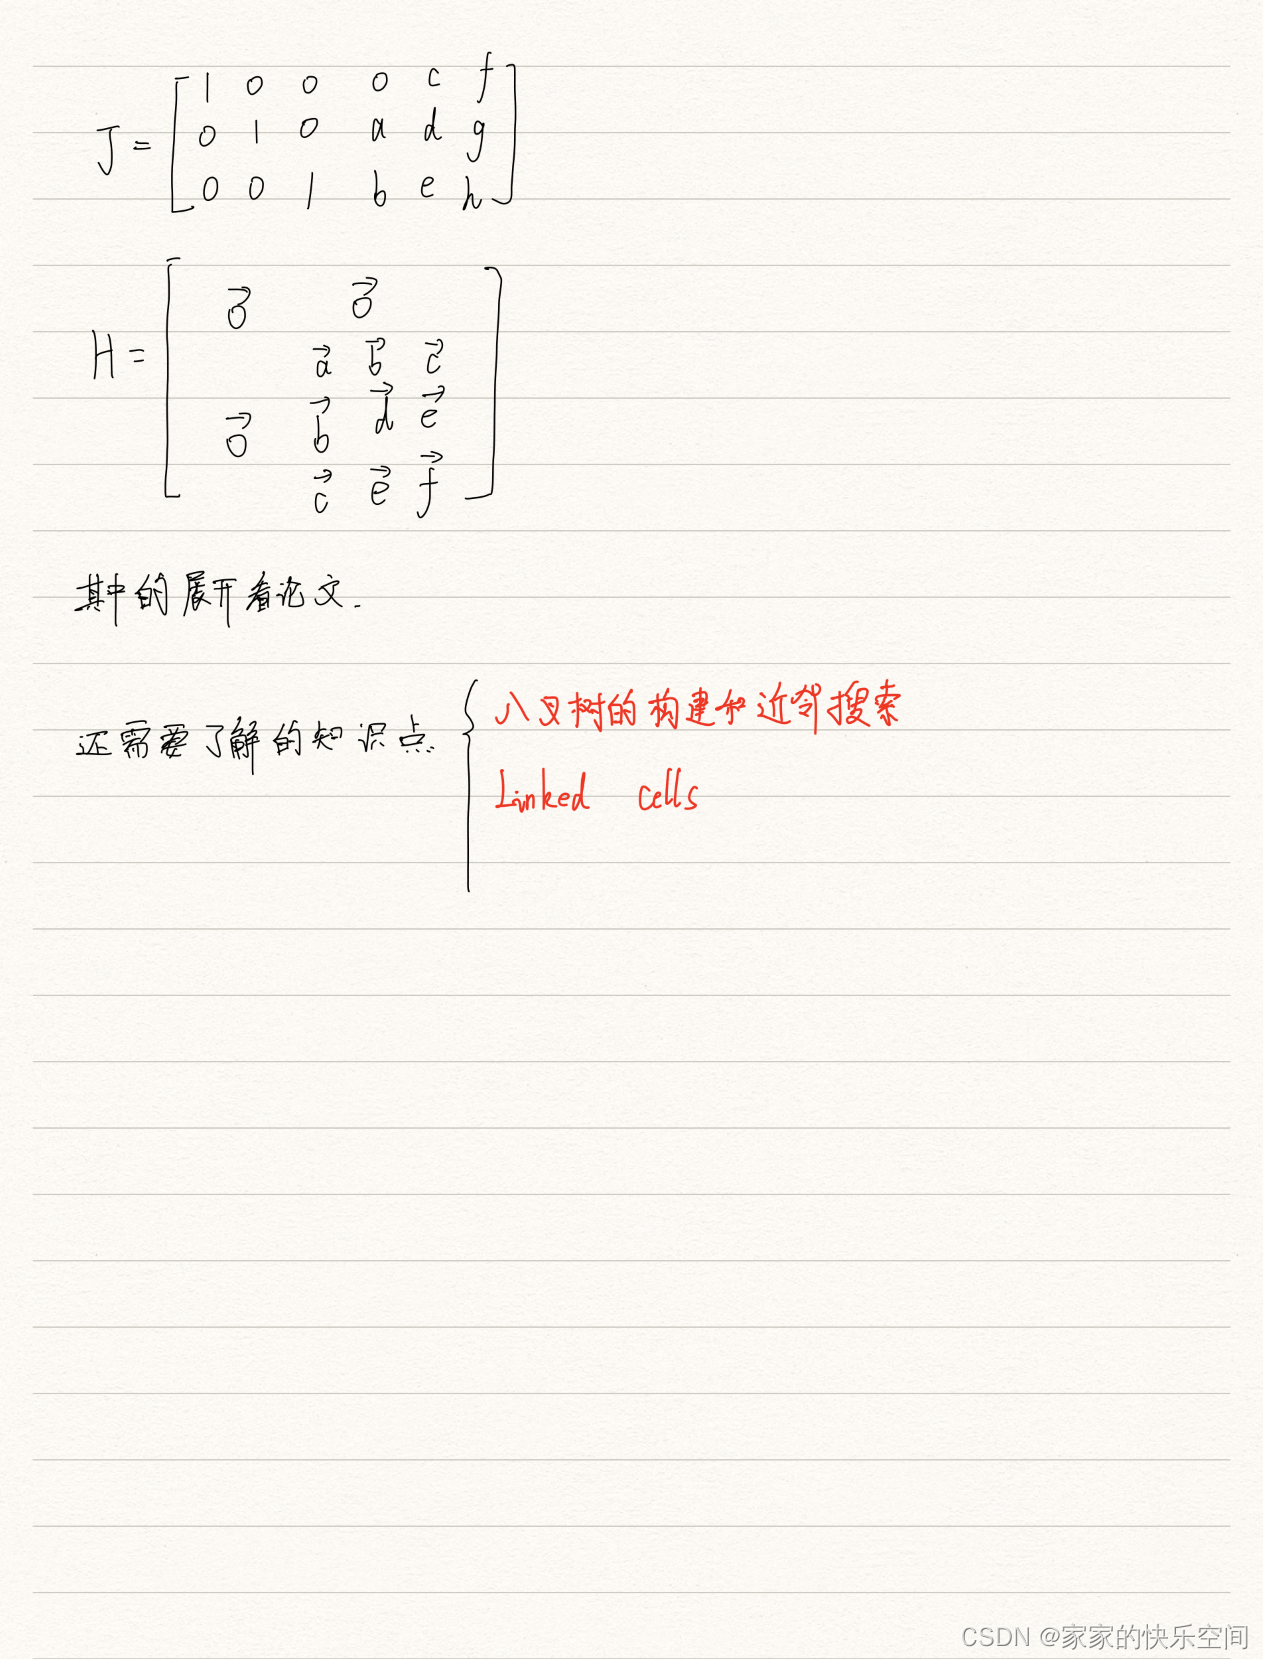 J = [ 1 0 0 0 c f
0 1 0 a d g
0 0 1 b e h ]
H = [ 0⃗ 0⃗
a⃗ b⃗ c⃗
0⃗ b⃗ d⃗ e⃗
c⃗ e⃗ f⃗ ]
其中的展开看论文.
还需要了解的知识点. { 八叉树的构建和近邻搜索
Linked cells
CSDN @家家的快乐空间